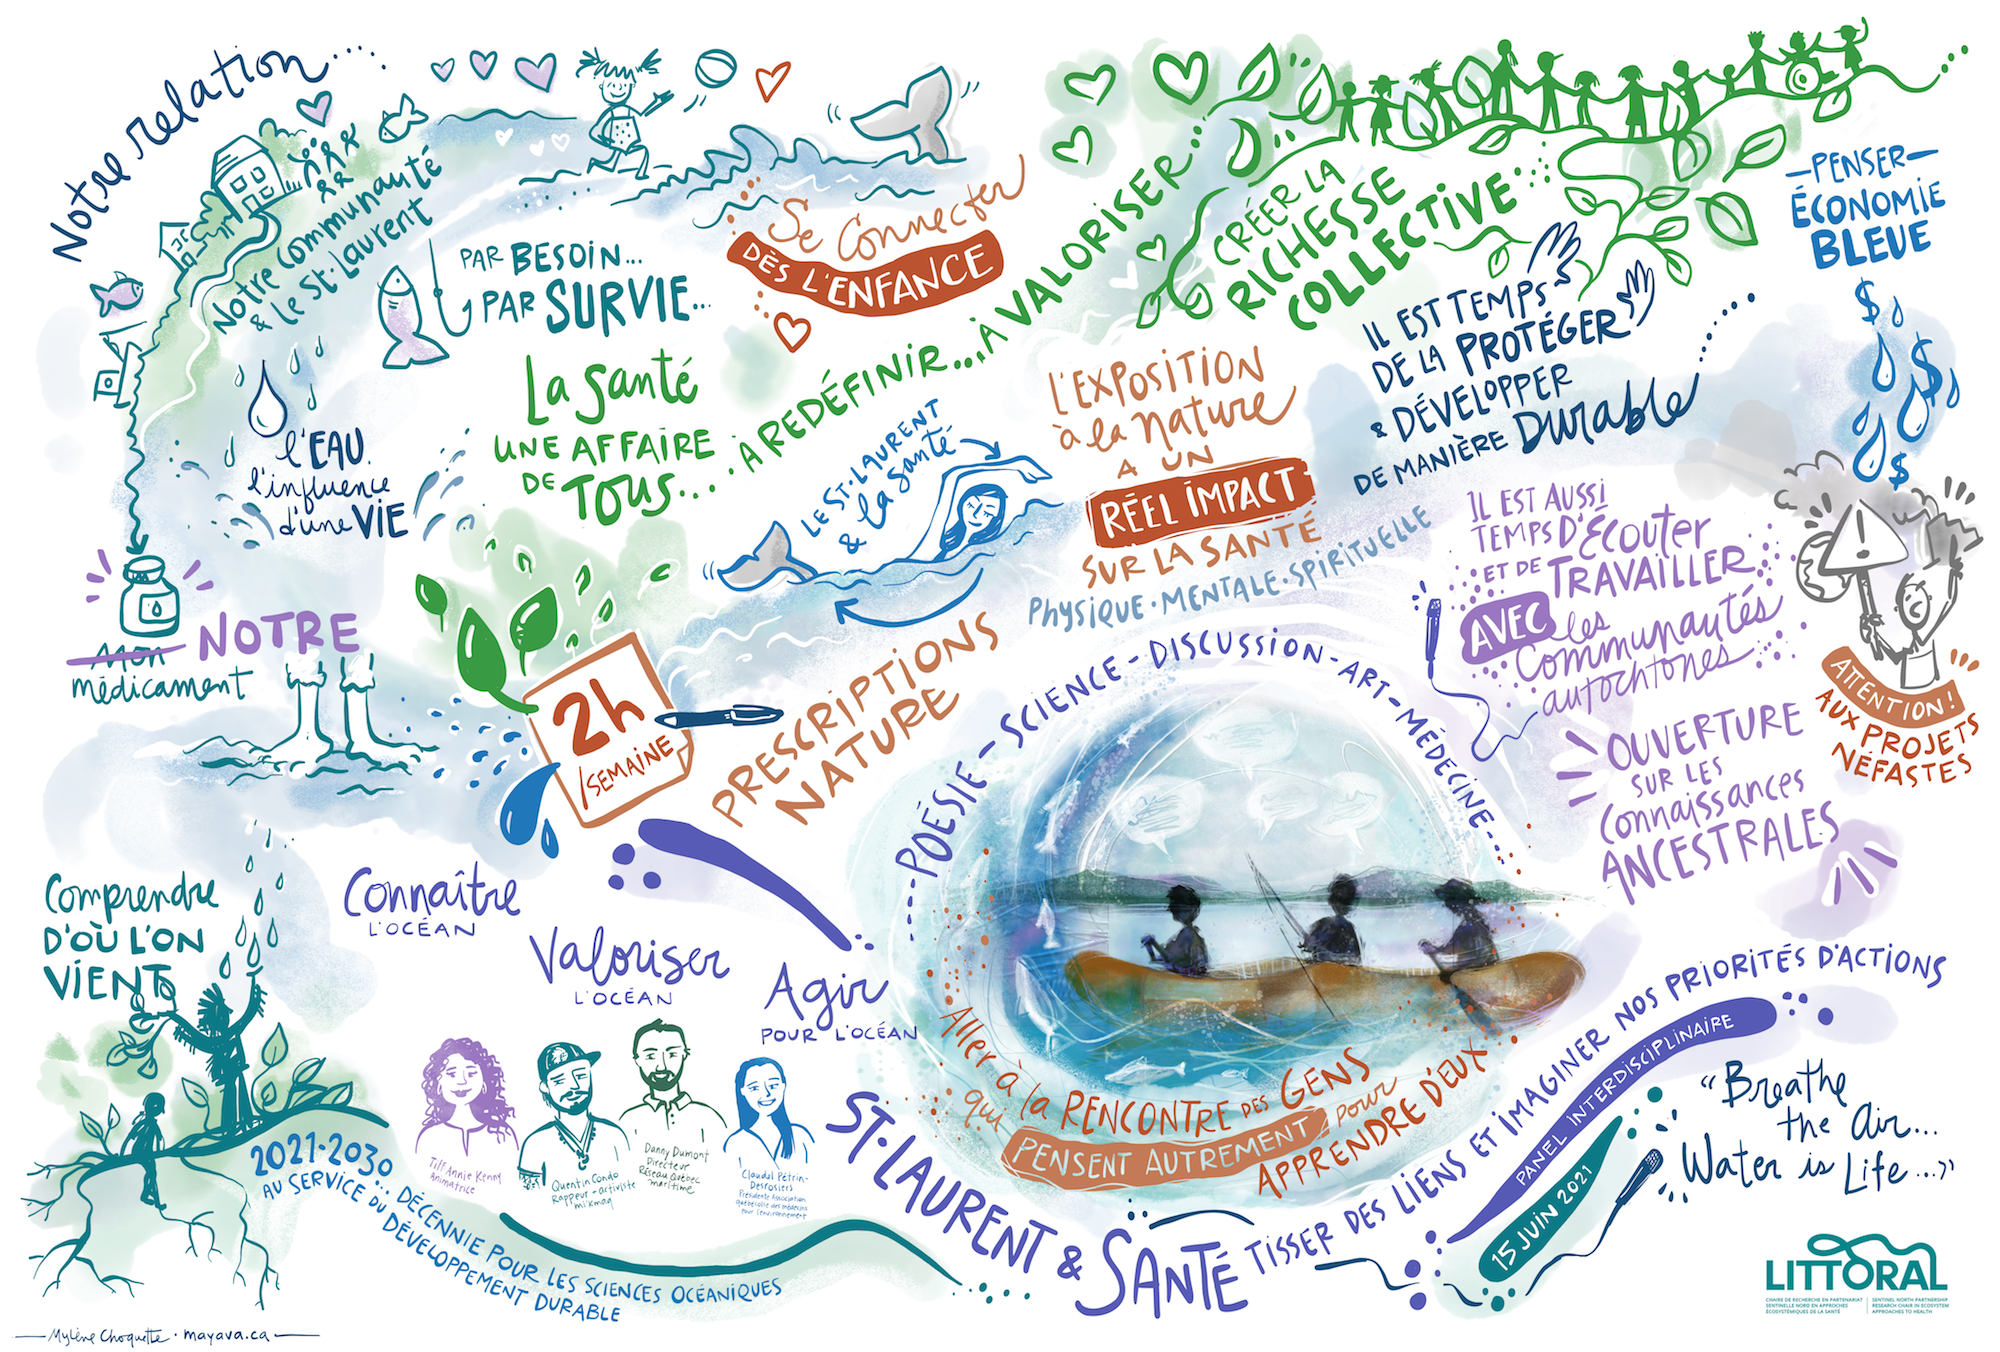 Notre relation....
Notre Communauté
& le St-Laurent
PAR BESOIN...
PAR SURVIE...
Se Connecter
DÈS L'ENFANCE
La Santé
UNE AFFAIRE
DE TOUS...
.À REDÉFINIR...
À VALORISER...
CRÉER LA
RICHESSE
COLLECTIVE
—PENSER—
ÉCONOMIE
BLEUE
$
$
$
IL EST TEMPS
DE LA PROTÉGER
& DÉVELOPPER
DE MANIÈRE Durable
l'EAU
l'influence
d'une VIE
LE ST-LAURENT
& la santé
L'EXPOSITION
à la nature
A UN
RÉEL IMPACT
SUR LA SANTÉ
PHYSIQUE • MENTALE • SPIRITUELLE
IL EST AUSSI
TEMPS D'Écouter
ET DE TRAVAILLER
AVEC les
Communautés
autochtones
!
ATTENTION!
AUX PROJETS
NÉFASTES
OUVERTURE
SUR LES
Connaissances
ANCESTRALES
Mon NOTRE
médicament
2h
/SEMAINE
PRESCRIPTIONS
NATURE
POÉSIE - SCIENCE - DISCUSSION - ART - MÉDECINE
Comprendre
D'OÙ L'ON
VIENT
Connaître
L'OCÉAN
Valoriser
L'OCÉAN
Agir
POUR L'OCÉAN
Tiff Annie Kenny
Animatrice
Quentin Condo
Rappeur-artiviste
mi'kmaq
Danny Dumont
Directeur
Réseau Québec
maritime
Claudel Pétrin-
Desrosiers
Présidente Association
québécoise des médecins
pour l'environnement
Aller à la RENCONTRE DES GENS
qui PENSENT AUTREMENT pour
APPRENDRE D'EUX
2021-2030... DÉCENNIE POUR LES SCIENCES OCÉANIQUES
AU SERVICE DU DÉVELOPPEMENT DURABLE
ST-LAURENT & SANTÉ TISSER DES LIENS ET IMAGINER NOS PRIORITÉS D'ACTIONS
PANEL INTERDISCIPLINAIRE
15 JUIN 2021
"Breathe
the air...
Water is Life..."
LITTORAL
CHAIRE DE RECHERCHE EN PARTENARIAT
SENTINELLE NORD EN APPROCHES
ÉCOSYSTÉMIQUES DE LA SANTÉ
SENTINEL NORTH PARTNERSHIP
RESEARCH CHAIR IN ECOSYSTEM
APPROACHES TO HEALTH
Mylène Choquette • mayava.ca